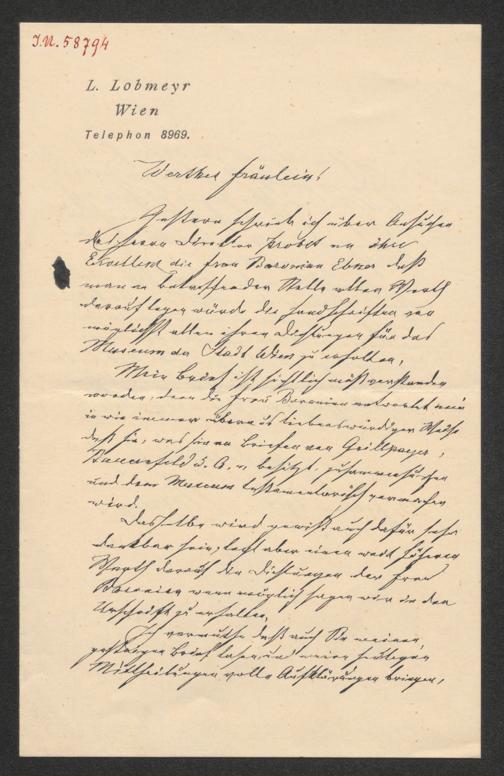 J.N. 58794
L. Lobmeyr
Wien
Telephon 8969.
Werthes Fräulein!
Gestern schrieb ich über Ansuchen
des Herrn Direktor Probst an Ihre
Excellenz die Frau Baronin Ebner daß
man an betreffender Stelle alten Werth
darauf legen würde die Handschriften von
möglichst allen ihren Dichtungen für das
Museum der Stadt Wien zu erhalten,
Mein Brief ist sichtlich mißverstanden
worden, denn die Frau Baronin antwortet mir
in wie immer überaus liebenswürdiger Weise
daß sie, was sie an Briefen von Grillparzer,
Bauernfeld u. A. besitzt, zusammensuchen
und dem Museum testamentarisch vermachen
wird.
Dasselbe wird gewiß auch dafür sehr
dankbar sein, legt aber einen weit höheren
Werth darauf die Dichtungen der Frau
Baronin wenn möglich sagen wir in der
Urschrift zu erhalten.
Ich vermuthe daß auch Sie meinen
gestrigen Brief lasen und meine heutigen
Mittheilungen volle Aufklärungen bringen,